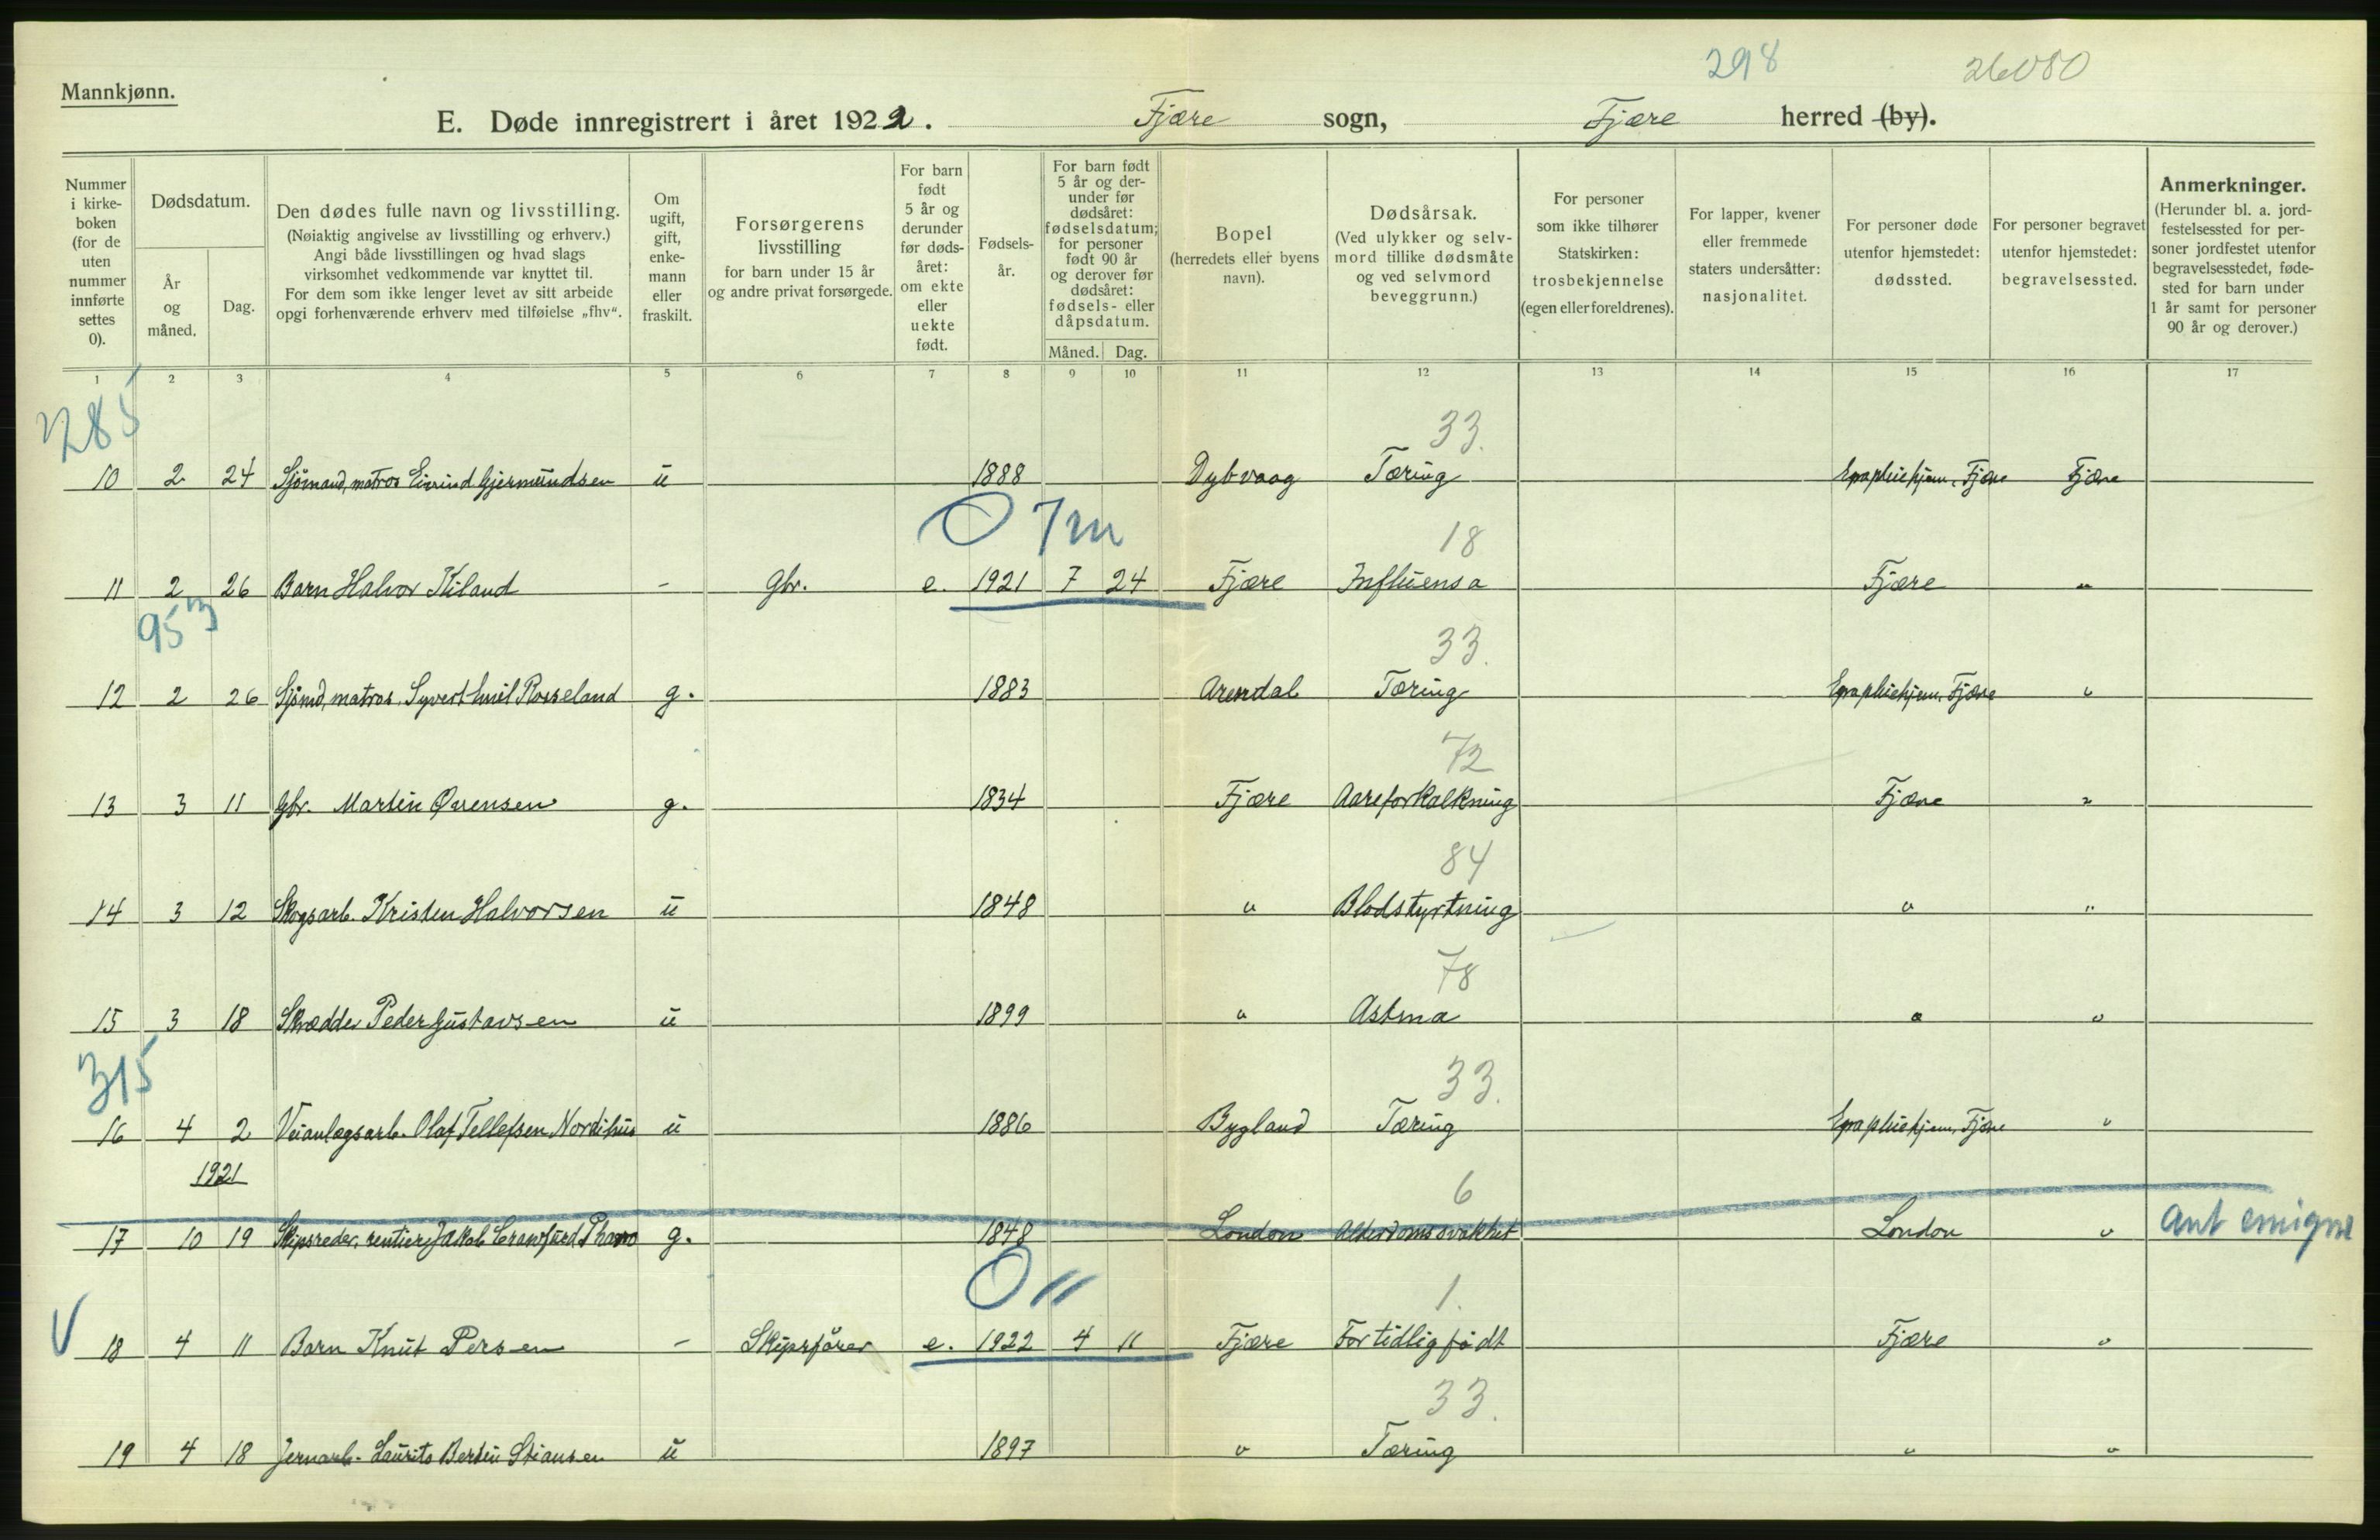 298 26080
Mannkjønn.
E. Døde innregistrert i året 1922. Fjære sogn, Fjære herred (by).
Nummer i kirke-boken (for de uten nummer innførte settes 0).
Dødsdatum.
År og måned.
Dag.
Den dødes fulle navn og livsstilling.
(Nøiaktig angivelse av livsstilling og erhverv.)
Angi både livsstillingen og hvad slags
virksomhet vedkommende var knyttet til.
For dem som ikke lenger levet av sitt arbeide
opgi forhenværende erhverv med tilføielse „fhv“.
Om ugift, gift, enke-mann eller fraskilt.
Forsørgerens livsstilling
for barn under 15 år
og andre privat forsørgede.
For barn født 5 år og derunder før døds-året: om ekte eller uekte født.
Fødsels-år.
For barn født 5 år og der-under før dødsåret: fødselsdatum; for personer født 90 år og derover før dødsåret: fødsels- eller dåpsdatum.
Måned. Dag.
Bopel
(herredets eller byens navn).
Dødsårsak.
(Ved ulykker og selv-mord tillike dødsmåte og ved selvmord beveggrunn.)
For personer som ikke tilhører Statskirken: trosbekjennelse (egen eller foreldrenes).
For lapper, kvener eller fremmede staters undersåtter: nasjonalitet.
For personer døde utenfor hjemstedet: dødssted.
For personer begravet utenfor hjemstedet: begravelsessted.
Anmerkninger.
(Herunder bl. a. jord-festelsessted for per-soner jordfestet utenfor begravelsesstedet, føde-sted for barn under 1 år samt for personer 90 år og derover.)
1 2 3 4 5 6 7 8 9 10 11 12 13 14 15 16 17
285 33.
10 2 24 Sjömand, matros Eivind Gjermundsen u 1888 Dybvaag Tæring Fjære Fjære
0 7m 18
11 2 26 Barn Halvor Kiland - Gbr. e. 1921 7 24 Fjære Influensa Fjære "
953 33.
12 2 26 Sjömd, matros. Syvert Emil Rosseland g. 1883 Arendal Tæring Fjære "
72
13 3 11 Gbr. Martin Örensen g. 1834 Fjære Aareforkalkning Fjære "
84
14 3 12 Skogsarb. Kristen Halvorsen u 1848 " Blodstyrtning " "
78
15 3 18 Skrædder Peder Gustavsen u 1899 " Astma " "
315 33.
16 4 2 Veianlægsarb. Olaf Tellefsen u 1886 Bygland Tæring Fjære "
1921 6
17 10 19 Skipsreder, rentier Jakob Crawfurd g. 1848 London Alderdomssvakhet London " Ant
0 11 1.
V 18 4 11 Barn Knut Persen - Skipsförer e. 1922 4 11 Fjære For tidlig födt Fjære "
33.
19 4 18 Jernarb. Laurits Bertin Stiansen u 1897 " Tæring " "